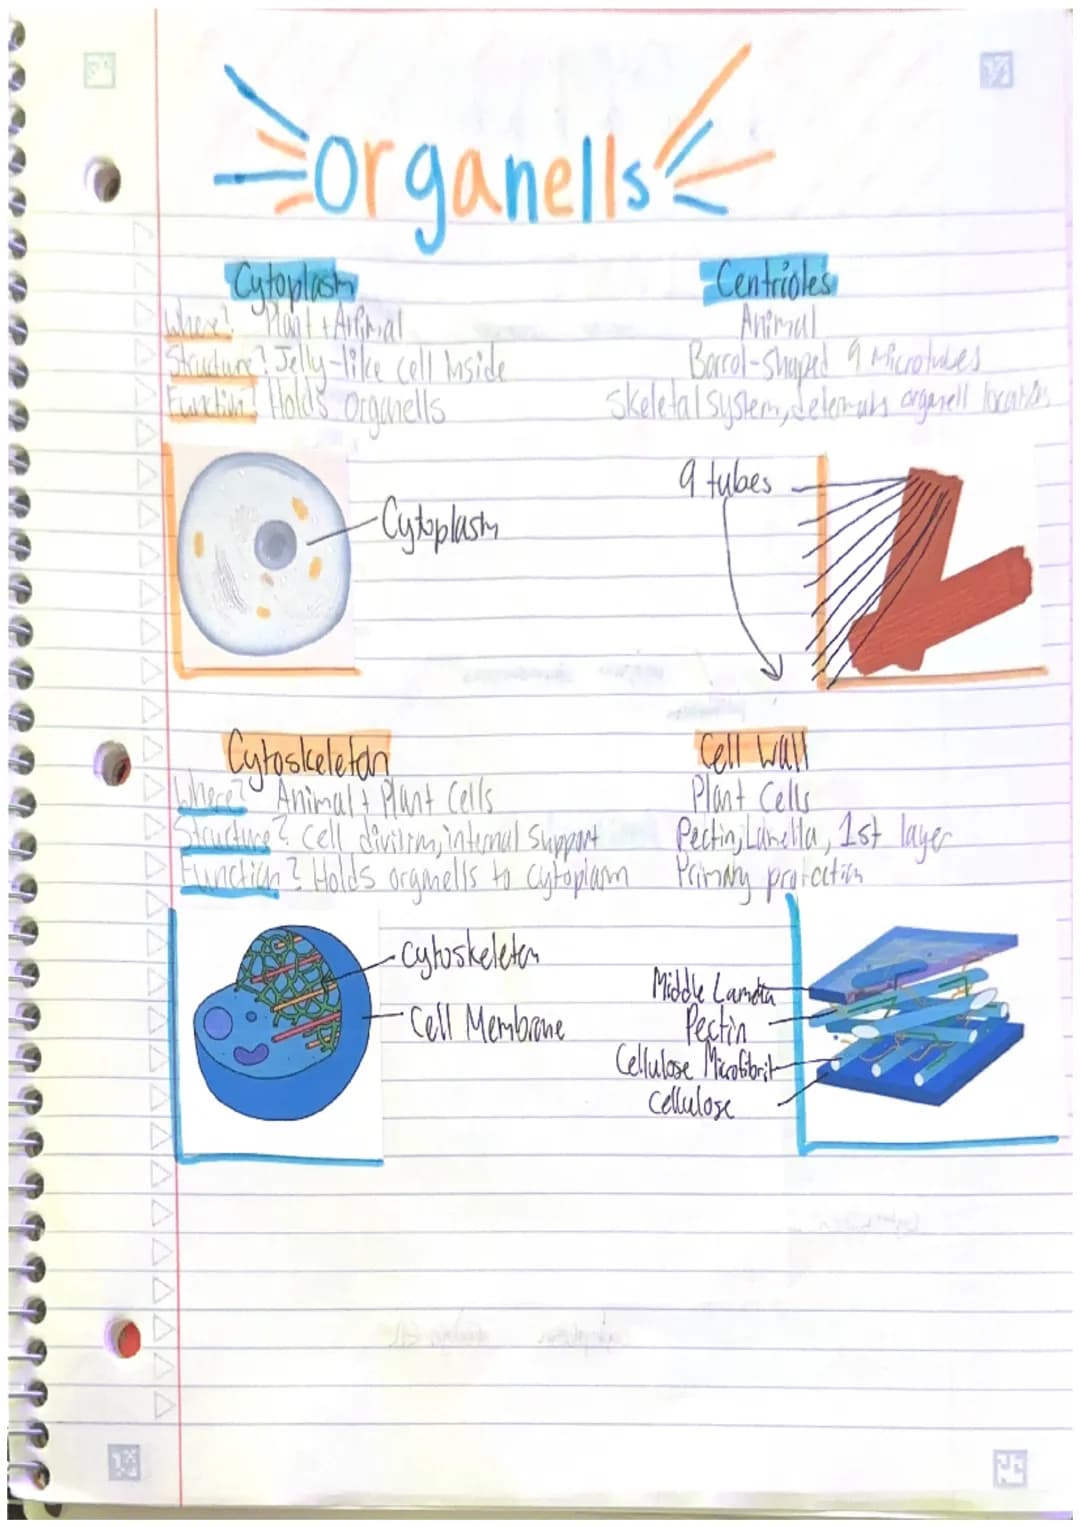 Organells
Cytoplasm
Where? Plant + Animal
Structure? Jelly-like cell Inside
Function? Holds organells
Centrioles
Animal
Barrol-Shaped 9 Microtubes
Skeletal system, organell location
Cytoplasm
9 tubes
Cytoskeleton
Where? Animal + Plant Cells
Structure? Cell division, internal Support
Function? Holds organells to cytoplasm
Cell Wall
Plant Cells
Pectin, Lamella, 1st layer
Primary protection
Cytoskeleton
Cell Membrane
Middle Lamella
Pectin
Cellulose Microfibril
Cellulose